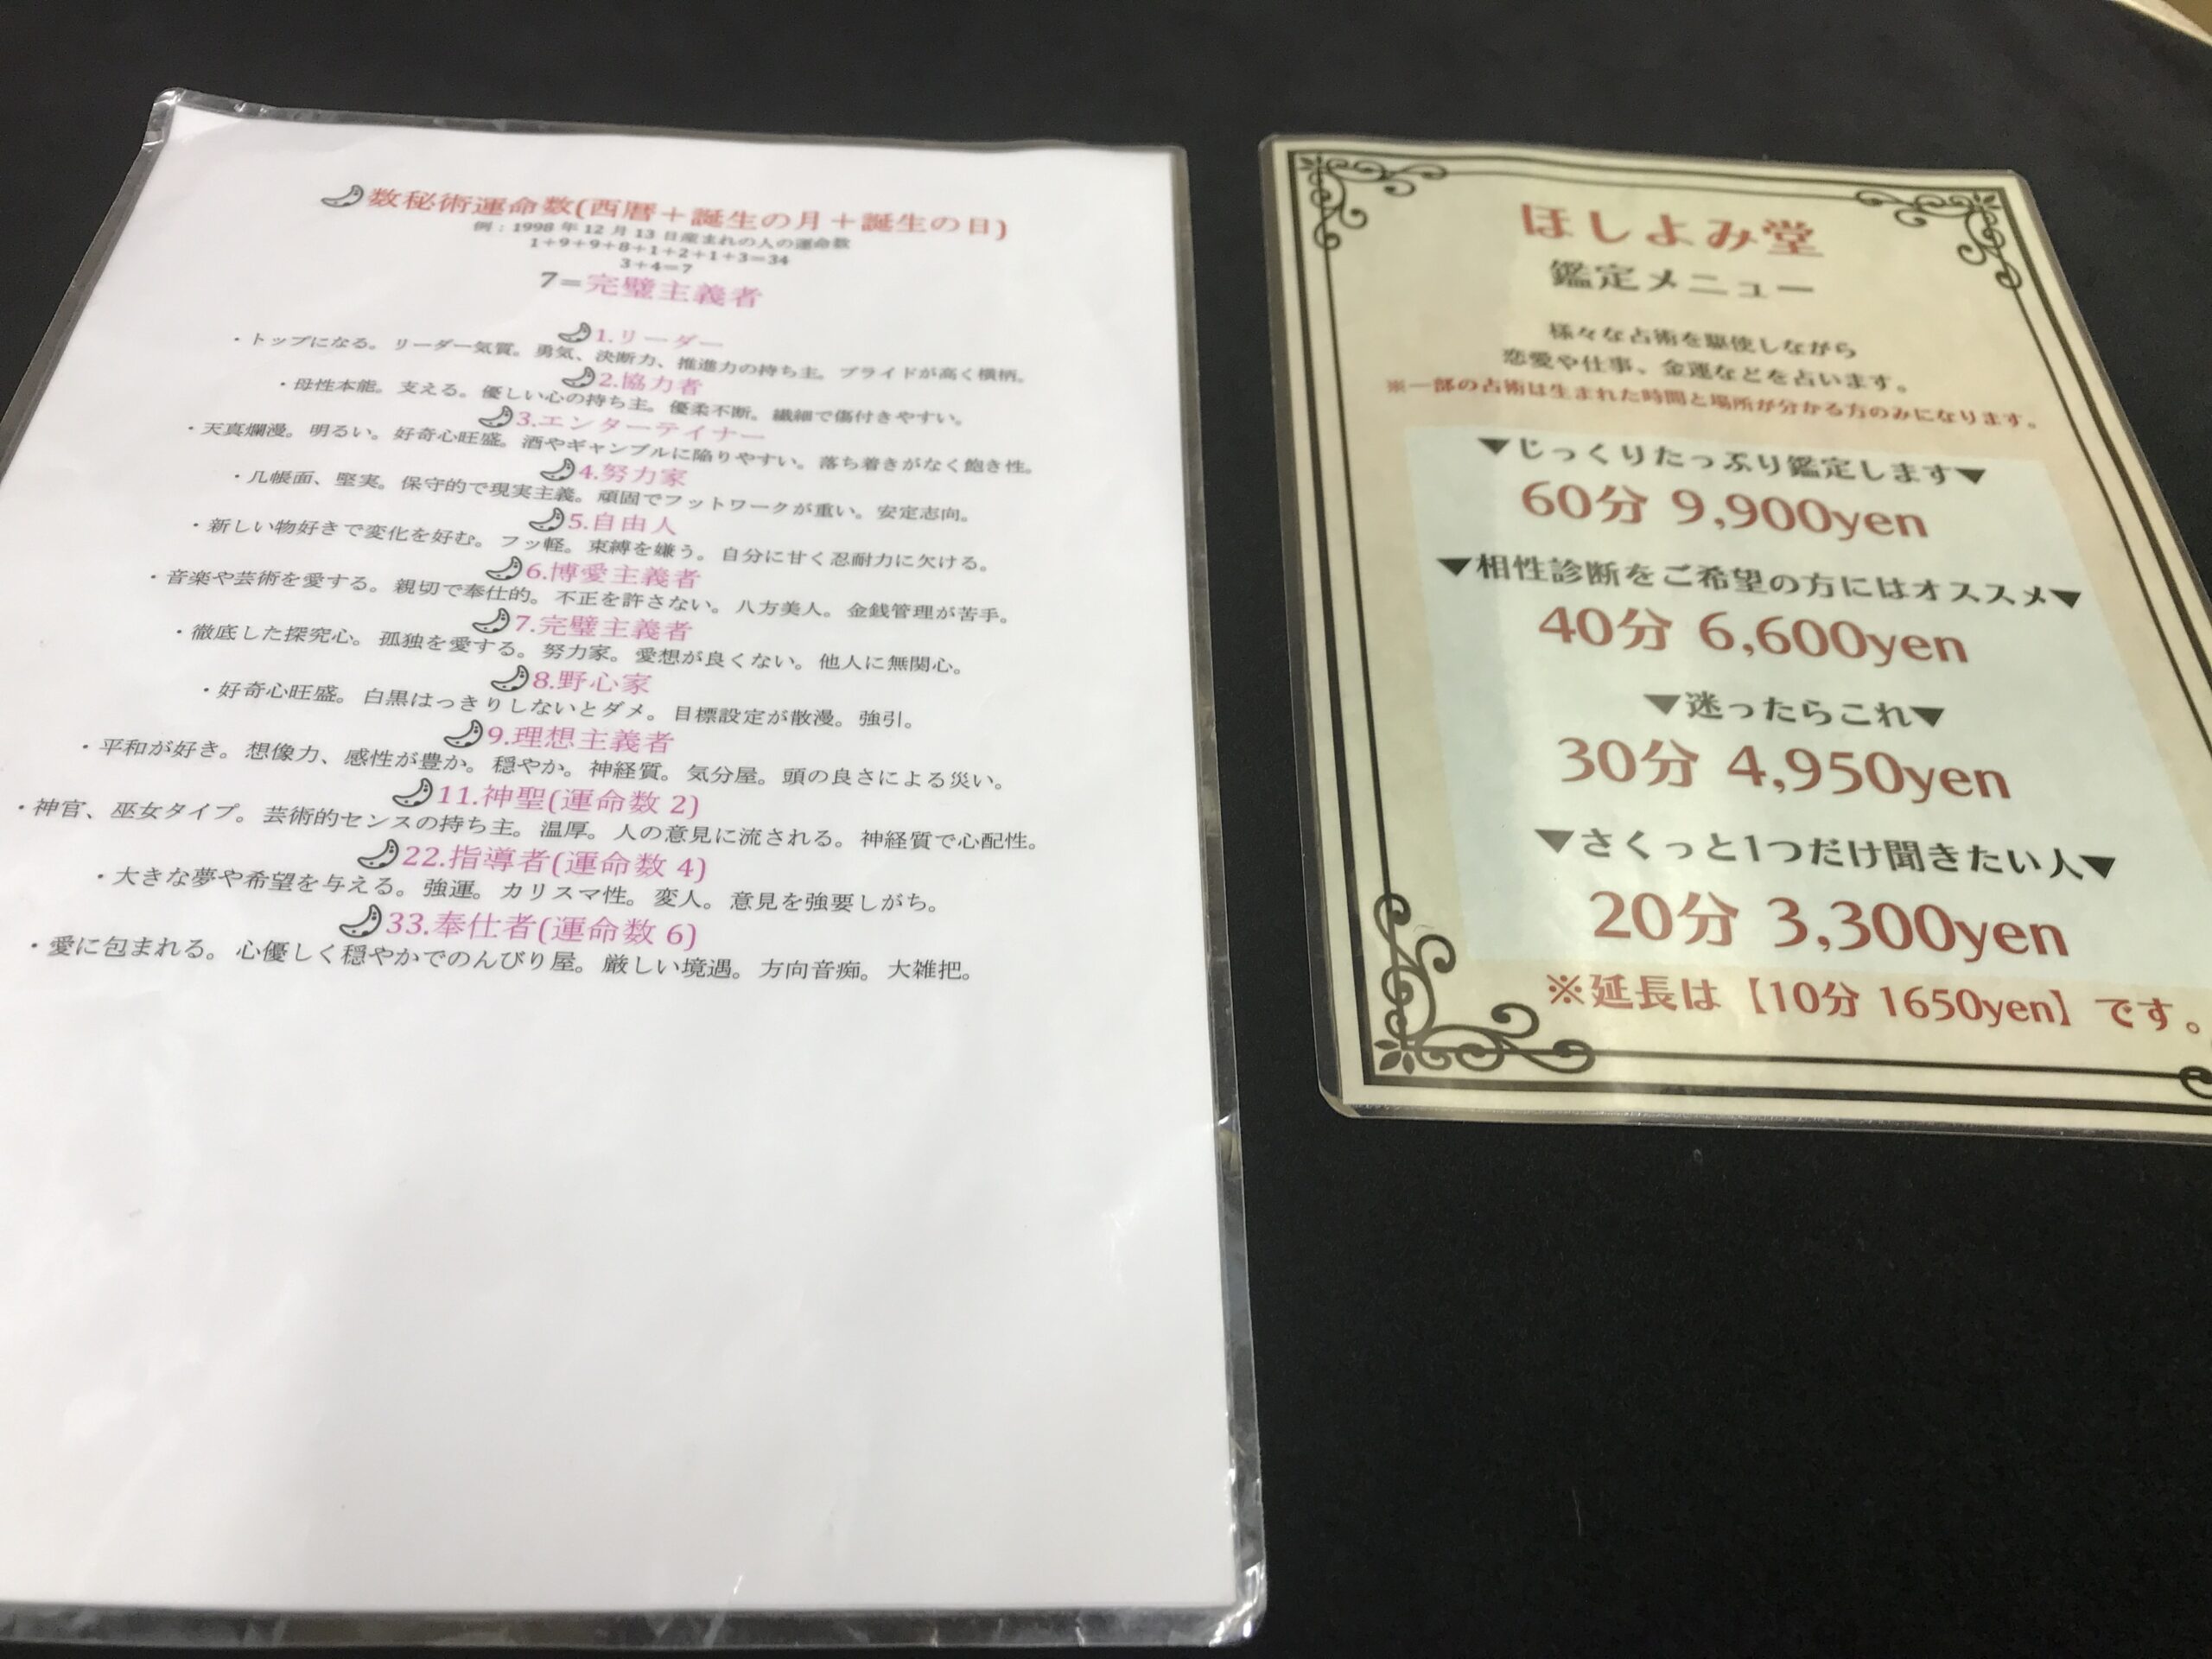 数秘術運命数(西暦＋誕生の月＋誕生の日)
例：1998 年 12 月 13 日産まれの人の運命数
1+9+9+8+1+2+1+3=34
3+4=7
7=完璧主義者
1.リーダー
・トップになる。リーダー気質。勇気、決断力、推進力の持ち主。プライドが高く横柄。
2.協力者
・母性本能。支える。優しい心の持ち主。優柔不断。繊細で傷付きやすい。
3.エンターテイナー
・天真爛漫。明るい。好奇心旺盛。酒やギャンブルに陥りやすい。落ち着きがなく飽き性。
4.努力家
・几帳面、堅実。保守的で現実主義。頑固でフットワークが重い。安定志向。
5.自由人
・新しい物好きで変化を好む。フッ軽。束縛を嫌う。自分に甘く忍耐力に欠ける。
6.博愛主義者
・音楽や芸術を愛する。親切で奉仕的。不正を許さない。八方美人。金銭管理が苦手。
7.完璧主義者
・徹底した探究心。孤独を愛する。努力家。愛想が良くない。他人に無関心。
8.野心家
・好奇心旺盛。白黒はっきりしないとダメ。目標設定が散漫。強引。
9.理想主義者
・平和が好き。想像力、感性が豊か。穏やか。神経質。気分屋。頭の良さによる災い。
11.神聖(運命数 2)
・神官、巫女タイプ。芸術的センスの持ち主。温厚。人の意見に流される。神経質で心配性。
22.指導者(運命数 4)
・大きな夢や希望を与える。強運。カリスマ性。変人。意見を強要しがち。
33.奉仕者(運命数 6)
・愛に包まれる。心優しく穏やかでのんびり屋。厳しい境遇。方向音痴。大雑把。
ほしよみ堂
鑑定メニュー
様々な占術を駆使しながら
恋愛や仕事、金運などを占います。
※一部の占術は生まれた時間と場所が分かる方のみになります。
▼じっくりたっぷり鑑定します▼
60分 9,900yen
▼相性診断をご希望の方にはオススメ▼
40分 6,600yen
▼迷ったらこれ▼
30分 4,950yen
▼さくっと1つだけ聞きたい人▼
20分 3,300yen
※延長は【10分 1650yen】です。